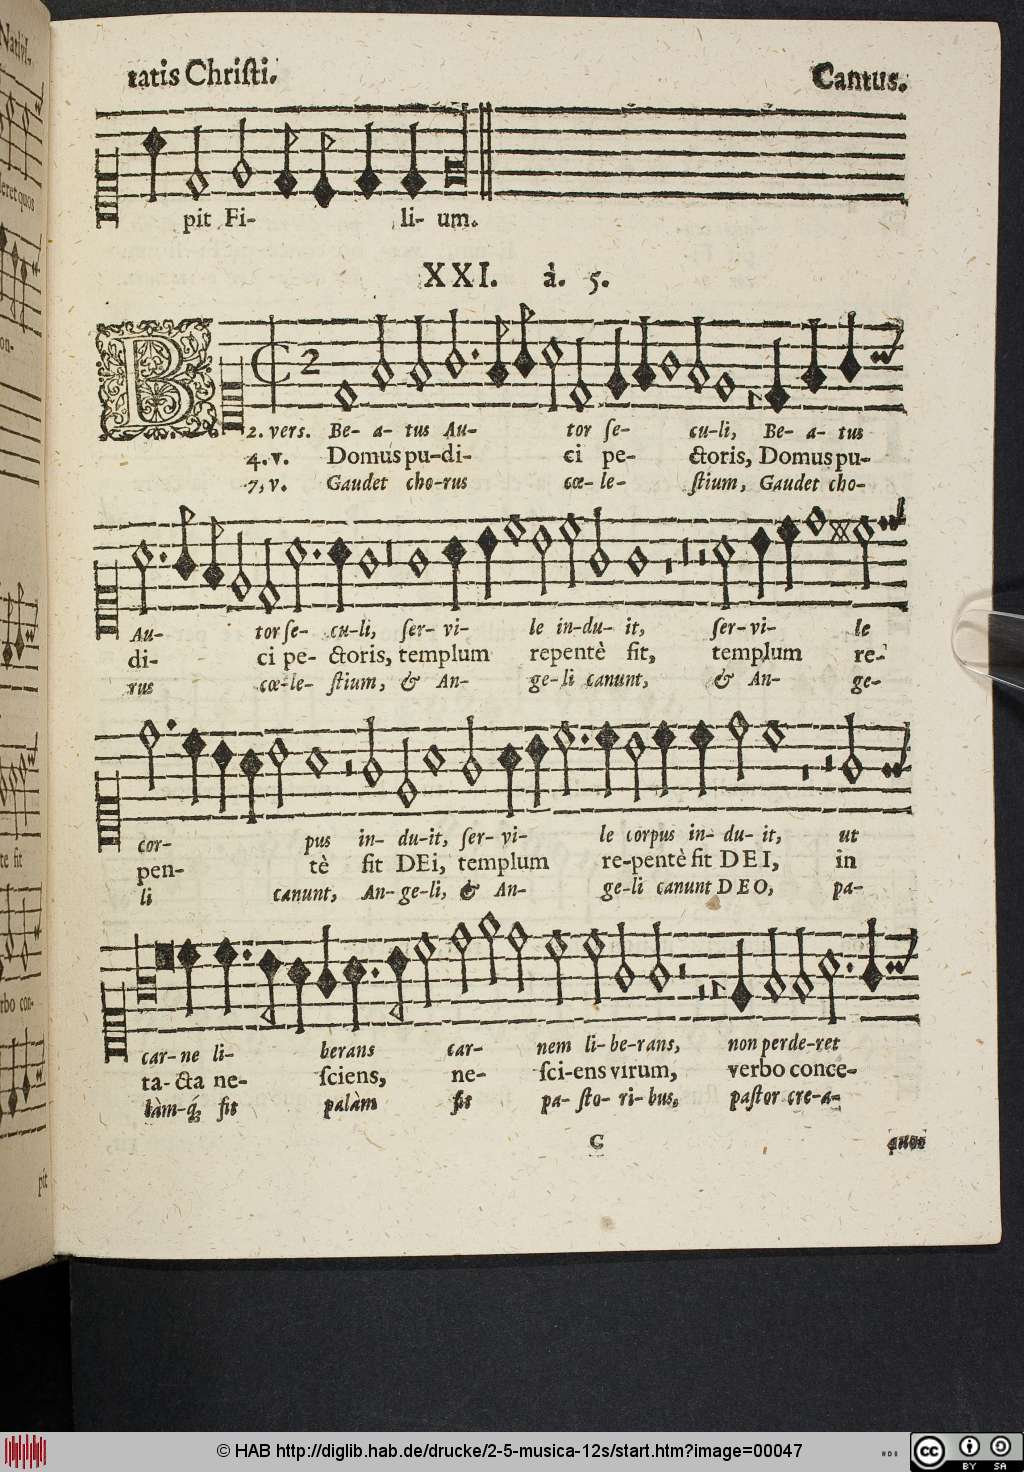 tatis Chriſti.
Cantus.
pit Fi- li- um.
XXI. à. 5.
B
2
2. vers. Be- a- tus Au- tor ſe- cu-li, Be- a- tus
4. v. Domus pu-di- ci pe- ctoris, Domus pu-
7, v. Gaudet cho-rus cœ- le- ſtium, Gaudet cho-
Au- tor ſe- cu-li, ſer- vi- le in-du- it, ſer-vi- le
di- ci pe- ctoris, templum repentè fit, templum re-
rus cœ-le- ſtium, & An- ge-li canunt, & An- ge-
cor- pus in- du-it, ſer- vi- le corpus in- du- it, ut
pen- tè fit DEi, templum re-pentè fit DEI, in
li canunt, An-ge-li, & An- ge-li canunt DEO, pa-
car-ne li- berans car- nem li-be-rans, non perde-ret
ta-cta ne- ſciens, ne- ſci-ens virum, verbo conce-
làm-q́; fit palàm fit pa- ſto- ri- bus, paſtor cre-a-
C
quos
Nativi.
deret quos
on-
te fit
rbo con-
pit
© HAB http://diglib.hab.de/drucke/2-5-musica-12s/start.htm?image=00047
cc BY SA